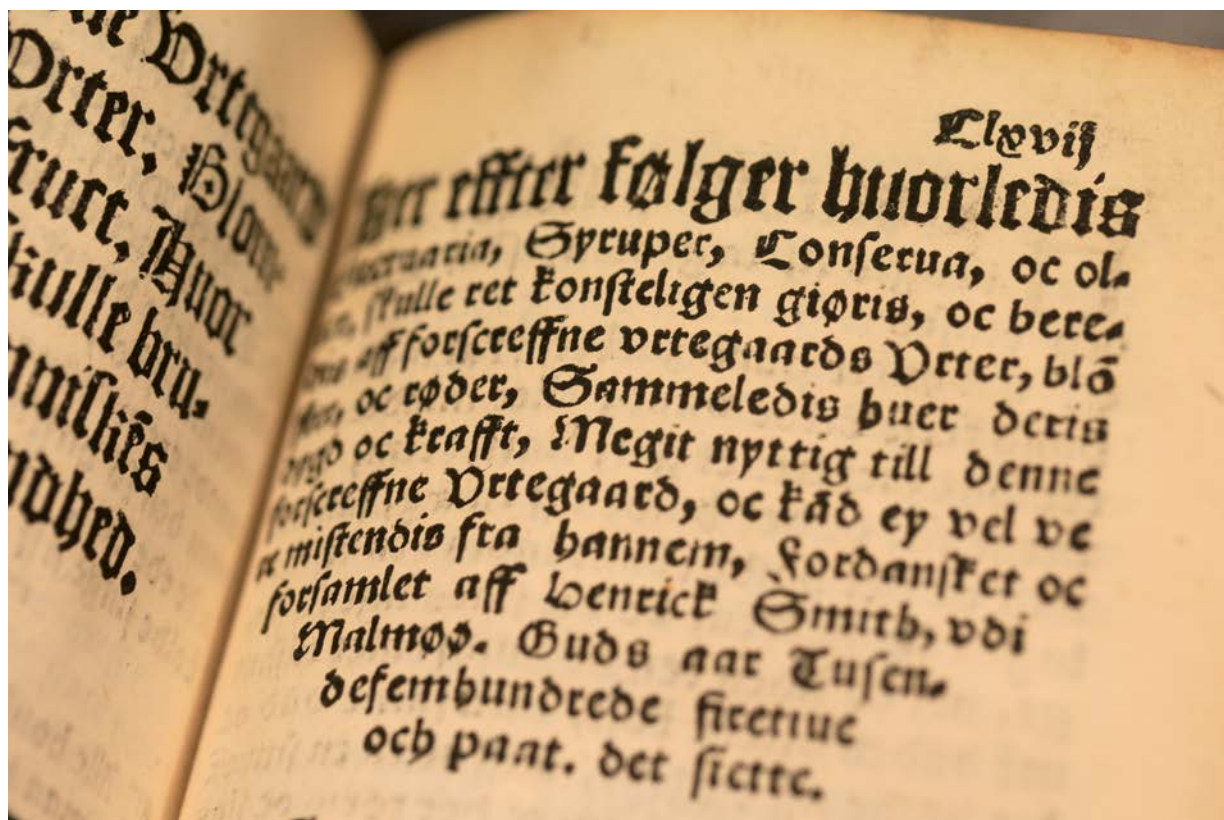 Vrtegaard
Orter, Blom-
fruct, Huor
skulle bru-
ndhed.
Clxvij
Her effter følger huorledis
Syruper, Conserua, oc ol-
skulle ret konsteligen giøris, oc bere-
aff forscreffne vrtegaards Vrter, blō
oc røder, Sammeledis huer deris
oc krafft, Megit nyttig till denne
forscreffne Vrtegaard, oc kād ey vel ve
re mistendis fra hannem, Fordansket oc
forsamlet aff Henrick Smith, vdi
Malmøø. Guds aar Tusen-
defemhundrede firetiue
och paat. det siette.